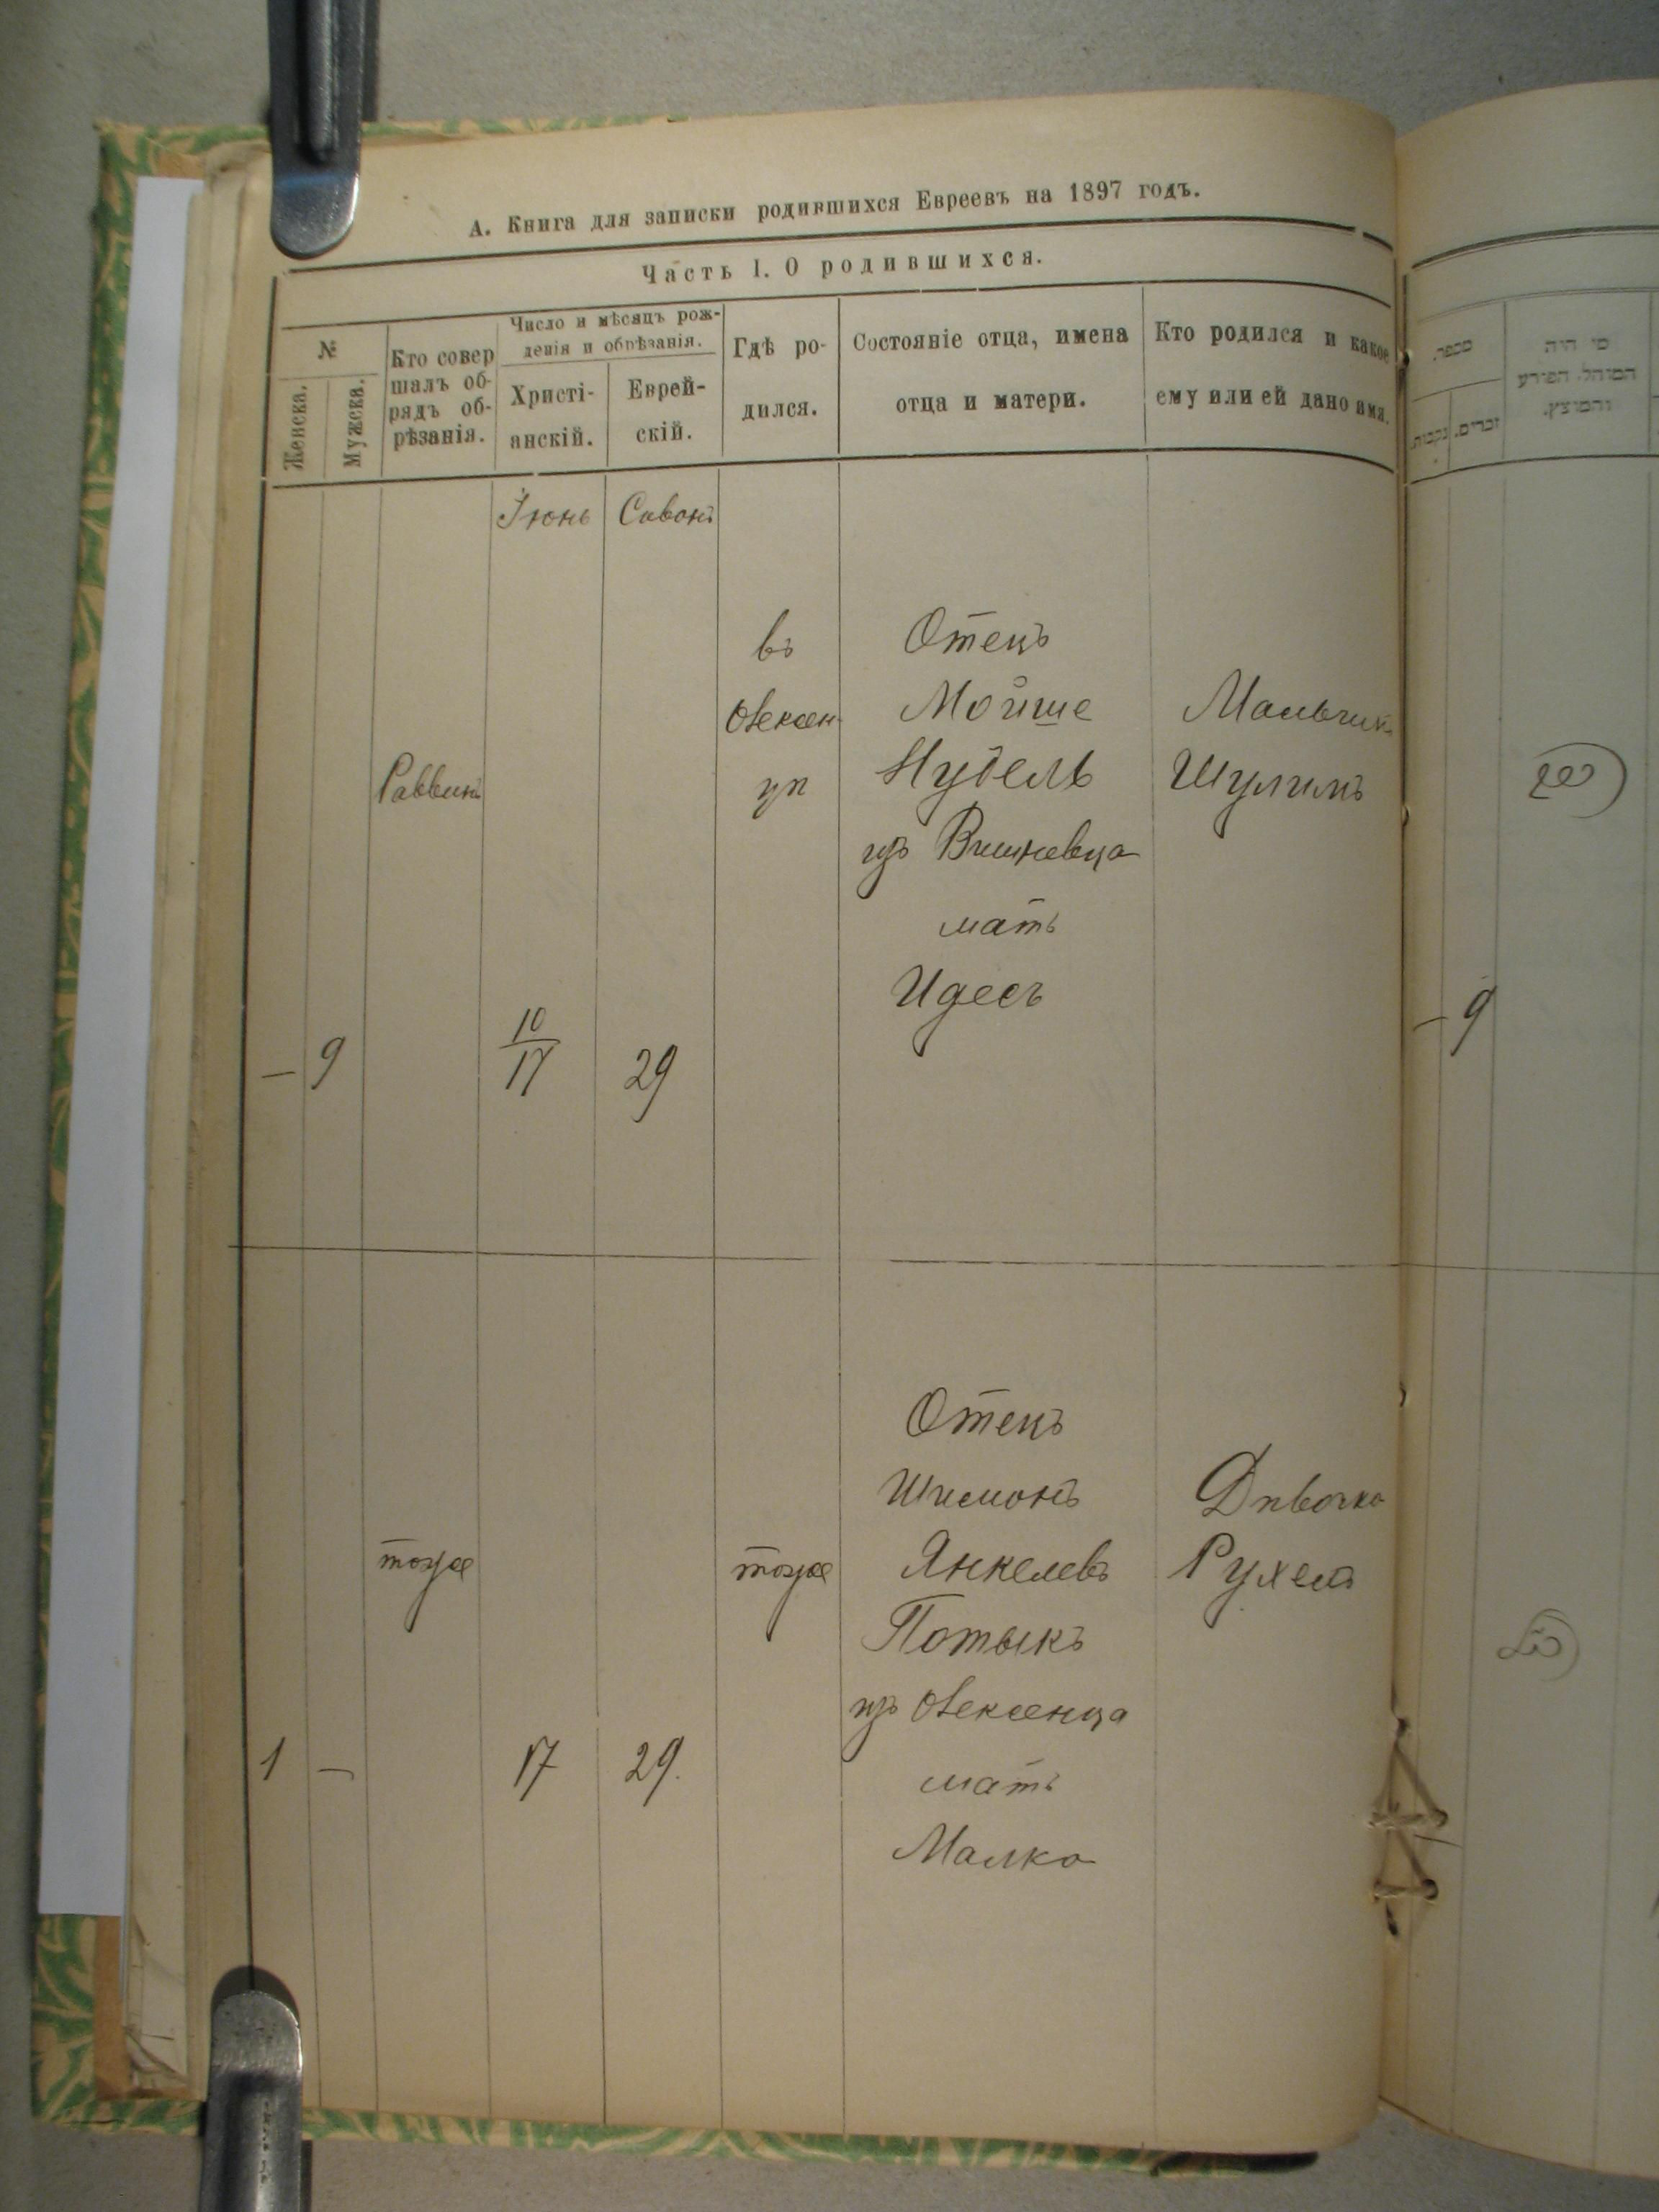 А. Книга для записки родившихся Евреевъ на 1897 годъ.
Часть I. О родившихся.
№
Женска.
Мужска.
Кто совер
шалъ об-
рядъ об-
рѣзанія.
Число и мѣсяцъ рож-
денія и обрѣзанія.
Христі-
анскій.
Еврей-
скій.
Гдѣ ро-
дился.
Состояніе отца, имена
отца и матери.
Кто родился и какое
ему или ей дано имя.
Іюнь
Сивонъ
— 9
Раввинъ
10
17
29
въ
Отецъ
Мойше
Нудель
изъ Вишневца
мать
Идесъ
Мальчикъ
Шулимъ
1 —
тоже
17
29.
тоже
Отецъ
Шимонъ
Янкелевъ
Потыкъ
изъ
мать
Малка
Дѣвочка
Рухель
מספר.
נקבות.
זכרים.
מי היה
המוהל הפורע
והמוצץ.
— 9